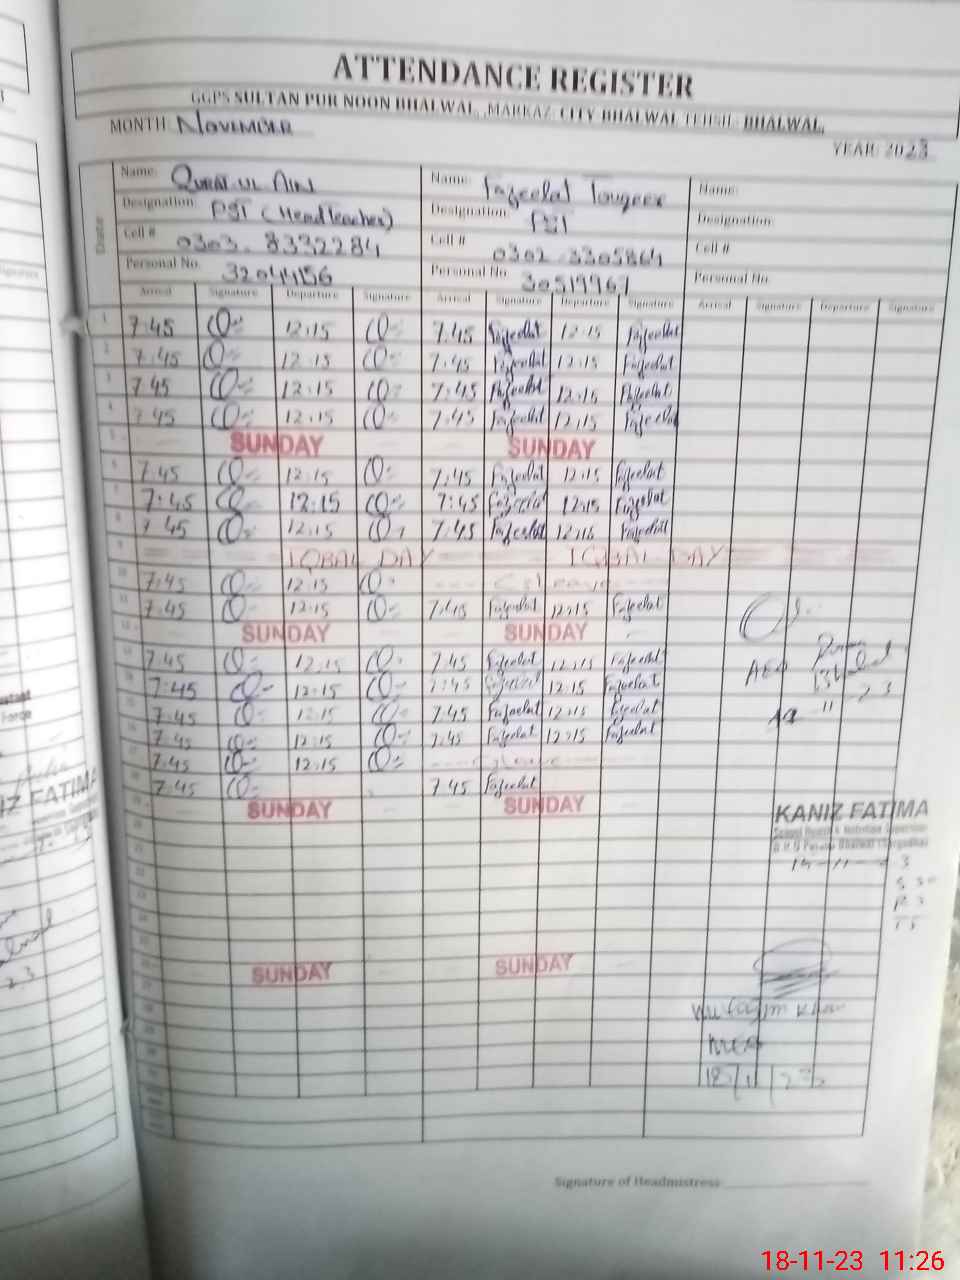 ATTENDANCE REGISTER
GGPS SULTAN PUR NOON BHALWAL, MARKAZ CITY BHALWAL TEHSIL BHALWAL,
MONTH NOVEMBER
YEAR: 2023
Name: QURAT-UL AIN Name: Fazeelat Touqeer Name:
Designation PST (Headteacher) Designation: PST Designation:
Cell # 0303-8332284 Cell # 0302-3305864 Cell #
Personal No. 32044156 Personal No 30519967 Personal No.
Date Arrival Signature Departure Signature Arrival Signature Departure Signature Arrival Signature Departure Signature
1 7:45 12:15 7:45 Fazeelat 12:15 Fazeelat
2 7:45 12:15 7:45 Fazeelat 12:15 Fazeelat
3 7:45 12:15 7:45 Fazeelat 12:15 Fazeelat
4 7:45 12:15 7:45 Fazeelat 12:15 Fazeelat
5 SUNDAY SUNDAY
6 7:45 12:15 7:45 Fazeelat 12:15 Fazeelat
7 7:45 12:15 7:45 Fazeelat 12:15 Fazeelat
8 7:45 12:15 7:45 Fazeelat 12:15 Fazeelat
9 IQBAL DAY IQBAL DAY
10 7:45 12:15 C.leave
11 7:45 12:15 7:45 Fazeelat 12:15 Fazeelat
12 SUNDAY SUNDAY
7:45 12:15 7:45 Fazeelat 12:15 Fazeelat
7:45 12:15 7:45 Fazeelat 12:15 Fazeelat
7:45 12:15 7:45 Fazeelat 12:15 Fazeelat
7:45 12:15 7:45 Fazeelat 12:15 Fazeelat
7:45 12:15 C.leave
7:45 7:45 Fazeelat
SUNDAY SUNDAY
AEO
KANIZ FATIMA
School Health & Nutrition Supervisor
SUNDAY SUNDAY
MEA
18/11/23
Signature of Headmistress
18-11-23 11:26